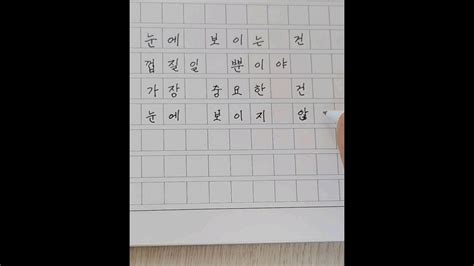 눈에 보이는 건
껍질일 뿐이야
가장 중요한 건
눈에 보이지 않